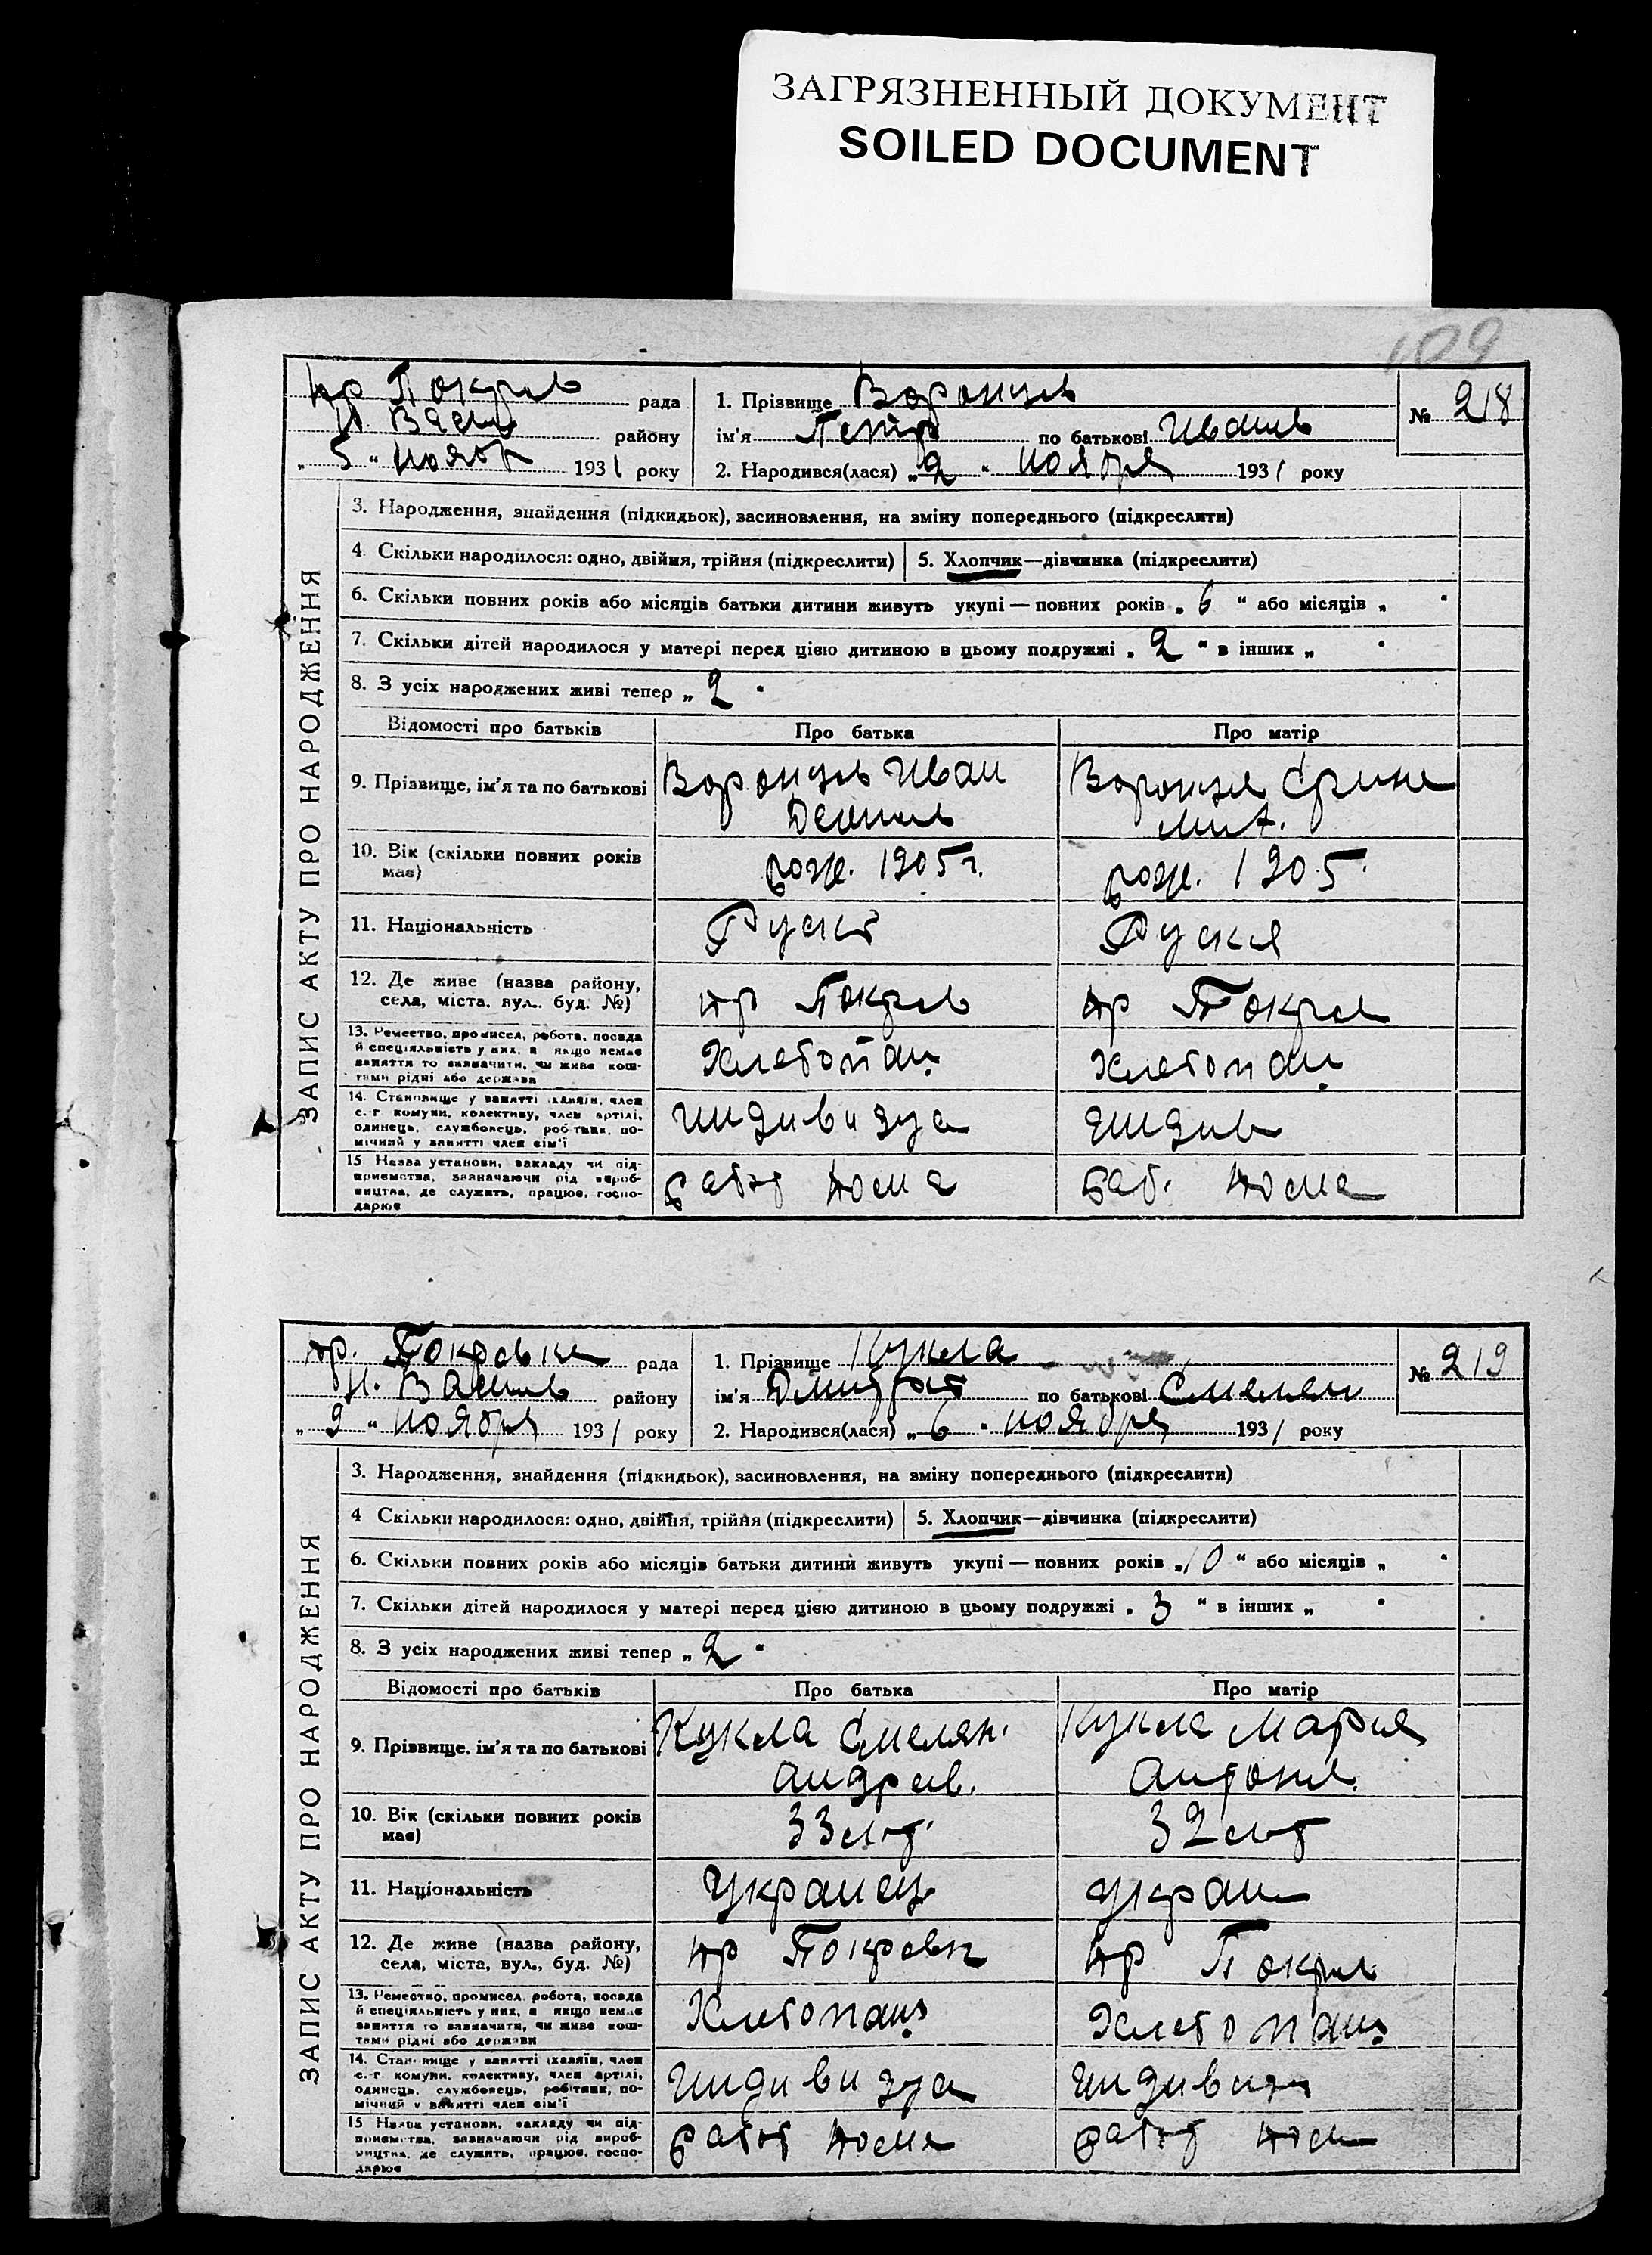 ЗАГРЯЗНЕННЫЙ ДОКУМЕНТ
SOILED DOCUMENT
109
пр Покров рада
Н. Васил району
„5“ ноябр 1931 року
1. Прізвище Воронцов
ім'я Петр по батькові Иванов
2. Народився(лася) „2“ ноября 1931 року
№ 218
ЗАПИС АКТУ ПРО НАРОДЖЕННЯ
3. Народження, знайдення (підкидьок), засиновлення, на зміну попереднього (підкреслити)
4. Скільки народилося: одно, двійня, трійня (підкреслити) 5. Хлопчик—дівчинка (підкреслити)
6. Скільки повних років або місяців батьки дитини живуть укупі — повних років „6“ або місяців „ “
7. Скільки дітей народилося у матері перед цією дитиною в цьому подружжі „2“ в інших „ “
8. З усіх народжених живі тепер „2“
Відомості про батьків Про батька Про матір
9. Прізвище, ім'я та по батькові Воронцов Иван Воронцов
Мит.
10. Вік (скільки повних років має) рож. 1905 г. рож. 1905.
11. Національність Руск Руская
12. Де живе (назва району, села, міста, вул. буд. №) пр Покров пр Покров
13. Ремество, промисел, робота, посада
й спеціяльність у них, а якщо немає
заняття то зазначити, чи живе кош-
тами рідні або держава
Хлебопаш Хлебопаш
14. Становище у занятті (хазяїн, член
с.-г. комуни, колективу, член артілі,
одинець, службовець, робітник, по-
мічний у занятті член сім'ї
Индивидуа Индив
15 Назва установи, закладу чи під-
приємства, зазначаючи рід вироб-
ництва, де служить, працює, госпо-
дарює
работ дома раб. дома
пр. Покровка рада
Н. Васил району
„9“ ноября 1931 року
1. Прізвище Кукла
ім'я Дмитрий по батькові Емелян
2. Народився(лася) „6“ ноября 1931 року
№ 219
ЗАПИС АКТУ ПРО НАРОДЖЕННЯ
3. Народження, знайдення (підкидьок), засиновлення, на зміну попереднього (підкреслити)
4 Скільки народилося: одно, двійня, трійня (підкреслити) 5. Хлопчик—дівчинка (підкреслити)
6. Скільки повних років або місяців батьки дитини живуть укупі — повних років „10“ або місяців „ “
7. Скільки дітей народилося у матері перед цією дитиною в цьому подружжі „3“ в інших „ “
8. З усіх народжених живі тепер „2“
Відомості про батьків Про батька Про матір
9. Прізвище, ім'я та по батькові Кукла Емелян Кукла Мария
Андреев. Антонов.
10. Вік (скільки повних років має) 33 лет 32 лет
11. Національність Украинец Украин
12. Де живе (назва району, села, міста, вул., буд. №) пр Покровк пр Покров
13. Ремество, промисел, робота, посада
й спеціяльність у них, а якщо немає
заняття то зазначити, чи живе кош-
тами рідні або держави
Хлебопаш Хлебопаш
14. Становище у занятті (хазяїн, член
с.-г. комуни, колективу, член артілі,
одинець, службовець, робітник, по-
мічний у занятті член сім'ї
Индивидуа Индивид
15 Назва установи, закладу чи під-
приємства, зазначаючи рід вироб-
ництва, де служить, працює, госпо-
дарює
работ дома работ дом